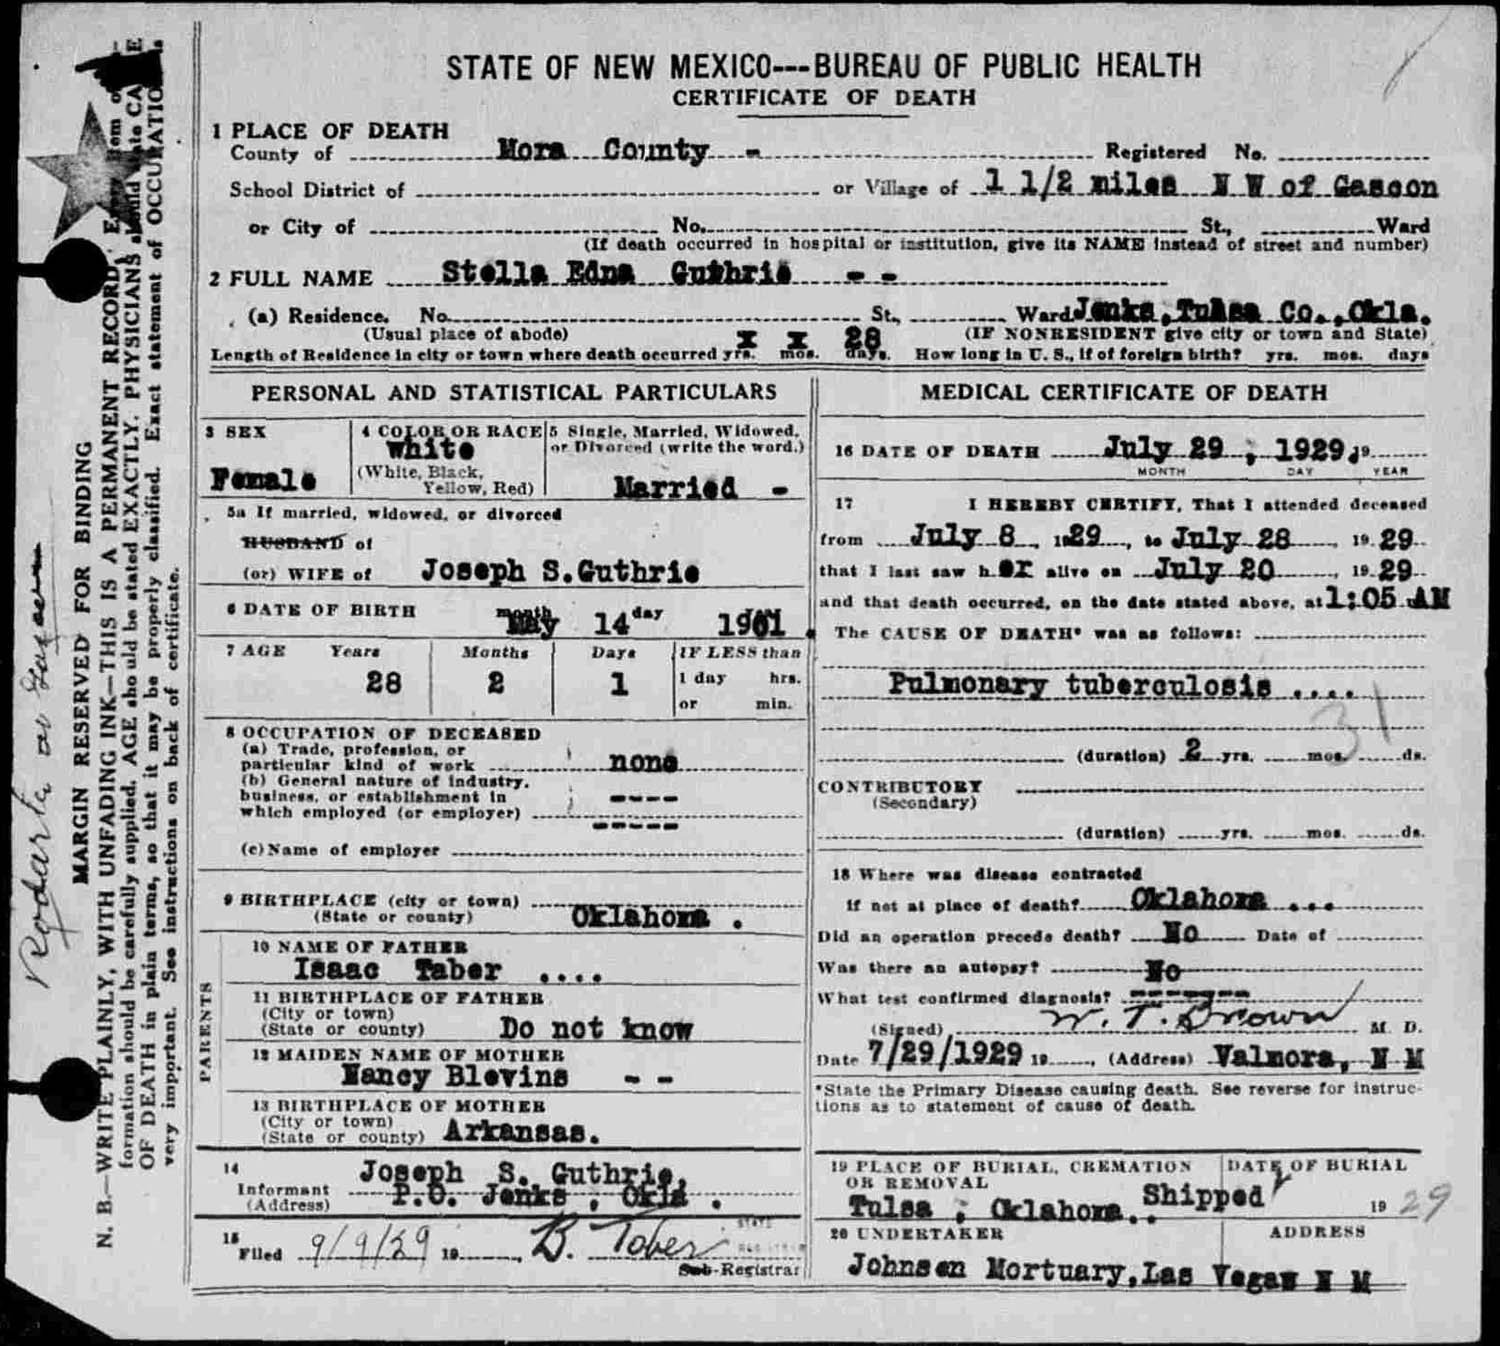 STATE OF NEW MEXICO---BUREAU OF PUBLIC HEALTH
CERTIFICATE OF DEATH
1 PLACE OF DEATH
County of Mora County - Registered No.
School District of or Village of 1 1/2 miles N W of Gascon
or City of No. St., Ward
(If death occurred in hospital or institution, give its NAME instead of street and number)
2 FULL NAME Stella Edna Guthrie - -
(a) Residence. No. St., Ward Jenks, Tulsa Co., Okla.
(Usual place of abode) (IF NONRESIDENT give city or town and State)
Length of Residence in city or town where death occurred yrs. x mos. x days. 28 How long in U. S., if of foreign birth? yrs. mos. days
PERSONAL AND STATISTICAL PARTICULARS
3 SEX
Female
4 COLOR OR RACE
White
(White, Black,
Yellow, Red)
5 Single, Married, Widowed,
or Divorced (write the word.)
Married -
5a If married, widowed, or divorced
HUSBAND of
(or) WIFE of Joseph S.Guthrie
6 DATE OF BIRTH month day
May 14 1901.
7 AGE Years Months Days IF LESS than
28 2 1 1 day hrs.
or min.
8 OCCUPATION OF DECEASED
(a) Trade, profession, or
particular kind of work none
(b) General nature of industry.
business, or establishment in ----
which employed (or employer) -----
(c) Name of employer
9 BIRTHPLACE (city or town)
(State or county) Oklahoma .
PARENTS
10 NAME OF FATHER
Isaac Taber ....
11 BIRTHPLACE OF FATHER
(City or town)
(State or county) Do not know
12 MAIDEN NAME OF MOTHER
Nancy Blevins - -
13 BIRTHPLACE OF MOTHER
(City or town)
(State or county) Arkansas.
14
Informant Joseph S. Guthrie,
(Address) P.O. Jenks , Okla .
15
Filed 9/9/29 19 B. Tober
Sub-Registrar
MEDICAL CERTIFICATE OF DEATH
16 DATE OF DEATH July 29 ; 1929, 19
MONTH DAY YEAR
17 I HEREBY CERTIFY, That I attended deceased
from July 8 , 1929 , to July 28 , 19 29
that I last saw h er alive on July 20 , 19 29
and that death occurred, on the date stated above, at 1:05 AM
The CAUSE OF DEATH* was as follows:
Pulmonary tuberculosis ....
31
(duration) 2 yrs. mos. ds.
CONTRIBUTORY
(Secondary)
(duration) yrs. mos. ds.
18 Where was disease contracted
if not at place of death? Oklahoma ...
Did an operation precede death? No Date of
Was there an autopsy? No
What test confirmed diagnosis? -------
(Signed) W. T. Brown M. D.
Date 7/29/1929 19 , (Address) Valmora, N M
*State the Primary Disease causing death. See reverse for instruc-
tions as to statement of cause of death.
19 PLACE OF BURIAL, CREMATION
OR REMOVAL
Tulsa , Oklahoma.. Shipped
DATE OF BURIAL
19 29
20 UNDERTAKER ADDRESS
Johnsen Mortuary, Las Vegas N M
MARGIN RESERVED FOR BINDING
N. B.—WRITE PLAINLY, WITH UNFADING INK—THIS IS A PERMANENT RECORD.
formation should be carefully supplied. AGE should be stated EXACTLY. PHYSICIANS should state CAUSE
OF DEATH in plain terms, so that it may be properly classified. Exact statement of OCCUPATION
very important. See instructions on back of certificate.